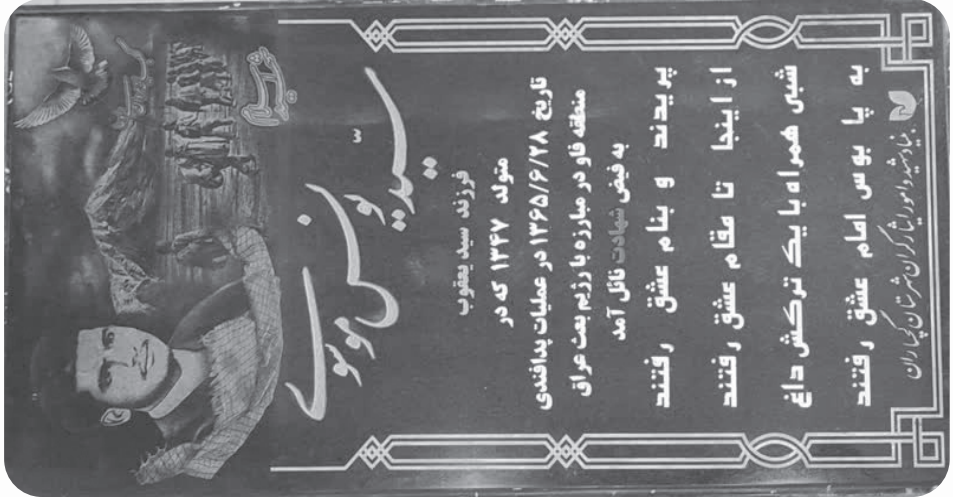 سید یونس موسوی
فرزند سید یعقوب
متولد ۱۳۴۷ که در
تاریخ ۱۳۶۵/۶/۲۸ در عملیات پدافندی
منطقه فاو در مبارزه با رژیم بعث عراق
به فیض شهادت نائل آمد
پریدند و بنام عشق رفتند
از اینجا تا مقام عشق رفتند
شبی همراه با یک ترکش داغ
به پا بوس امام عشق رفتند
بنیاد شهید و امور ایثارگران شهرستان گچساران